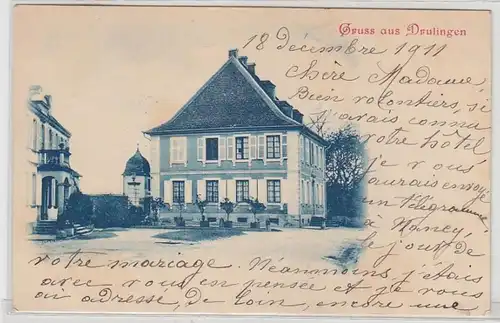 Gruss aus Drulingen
18 décembre 1911
Chère Madame,
Bien volontiers, si
j'avais connu
votre hôtel
je vous
aurais envoyé
un télégramme
à Nancy,
le jour de
votre mariage. Néanmoins, j'étais
avec vous en pensée et je vous
ai adressé, de loin, encore une